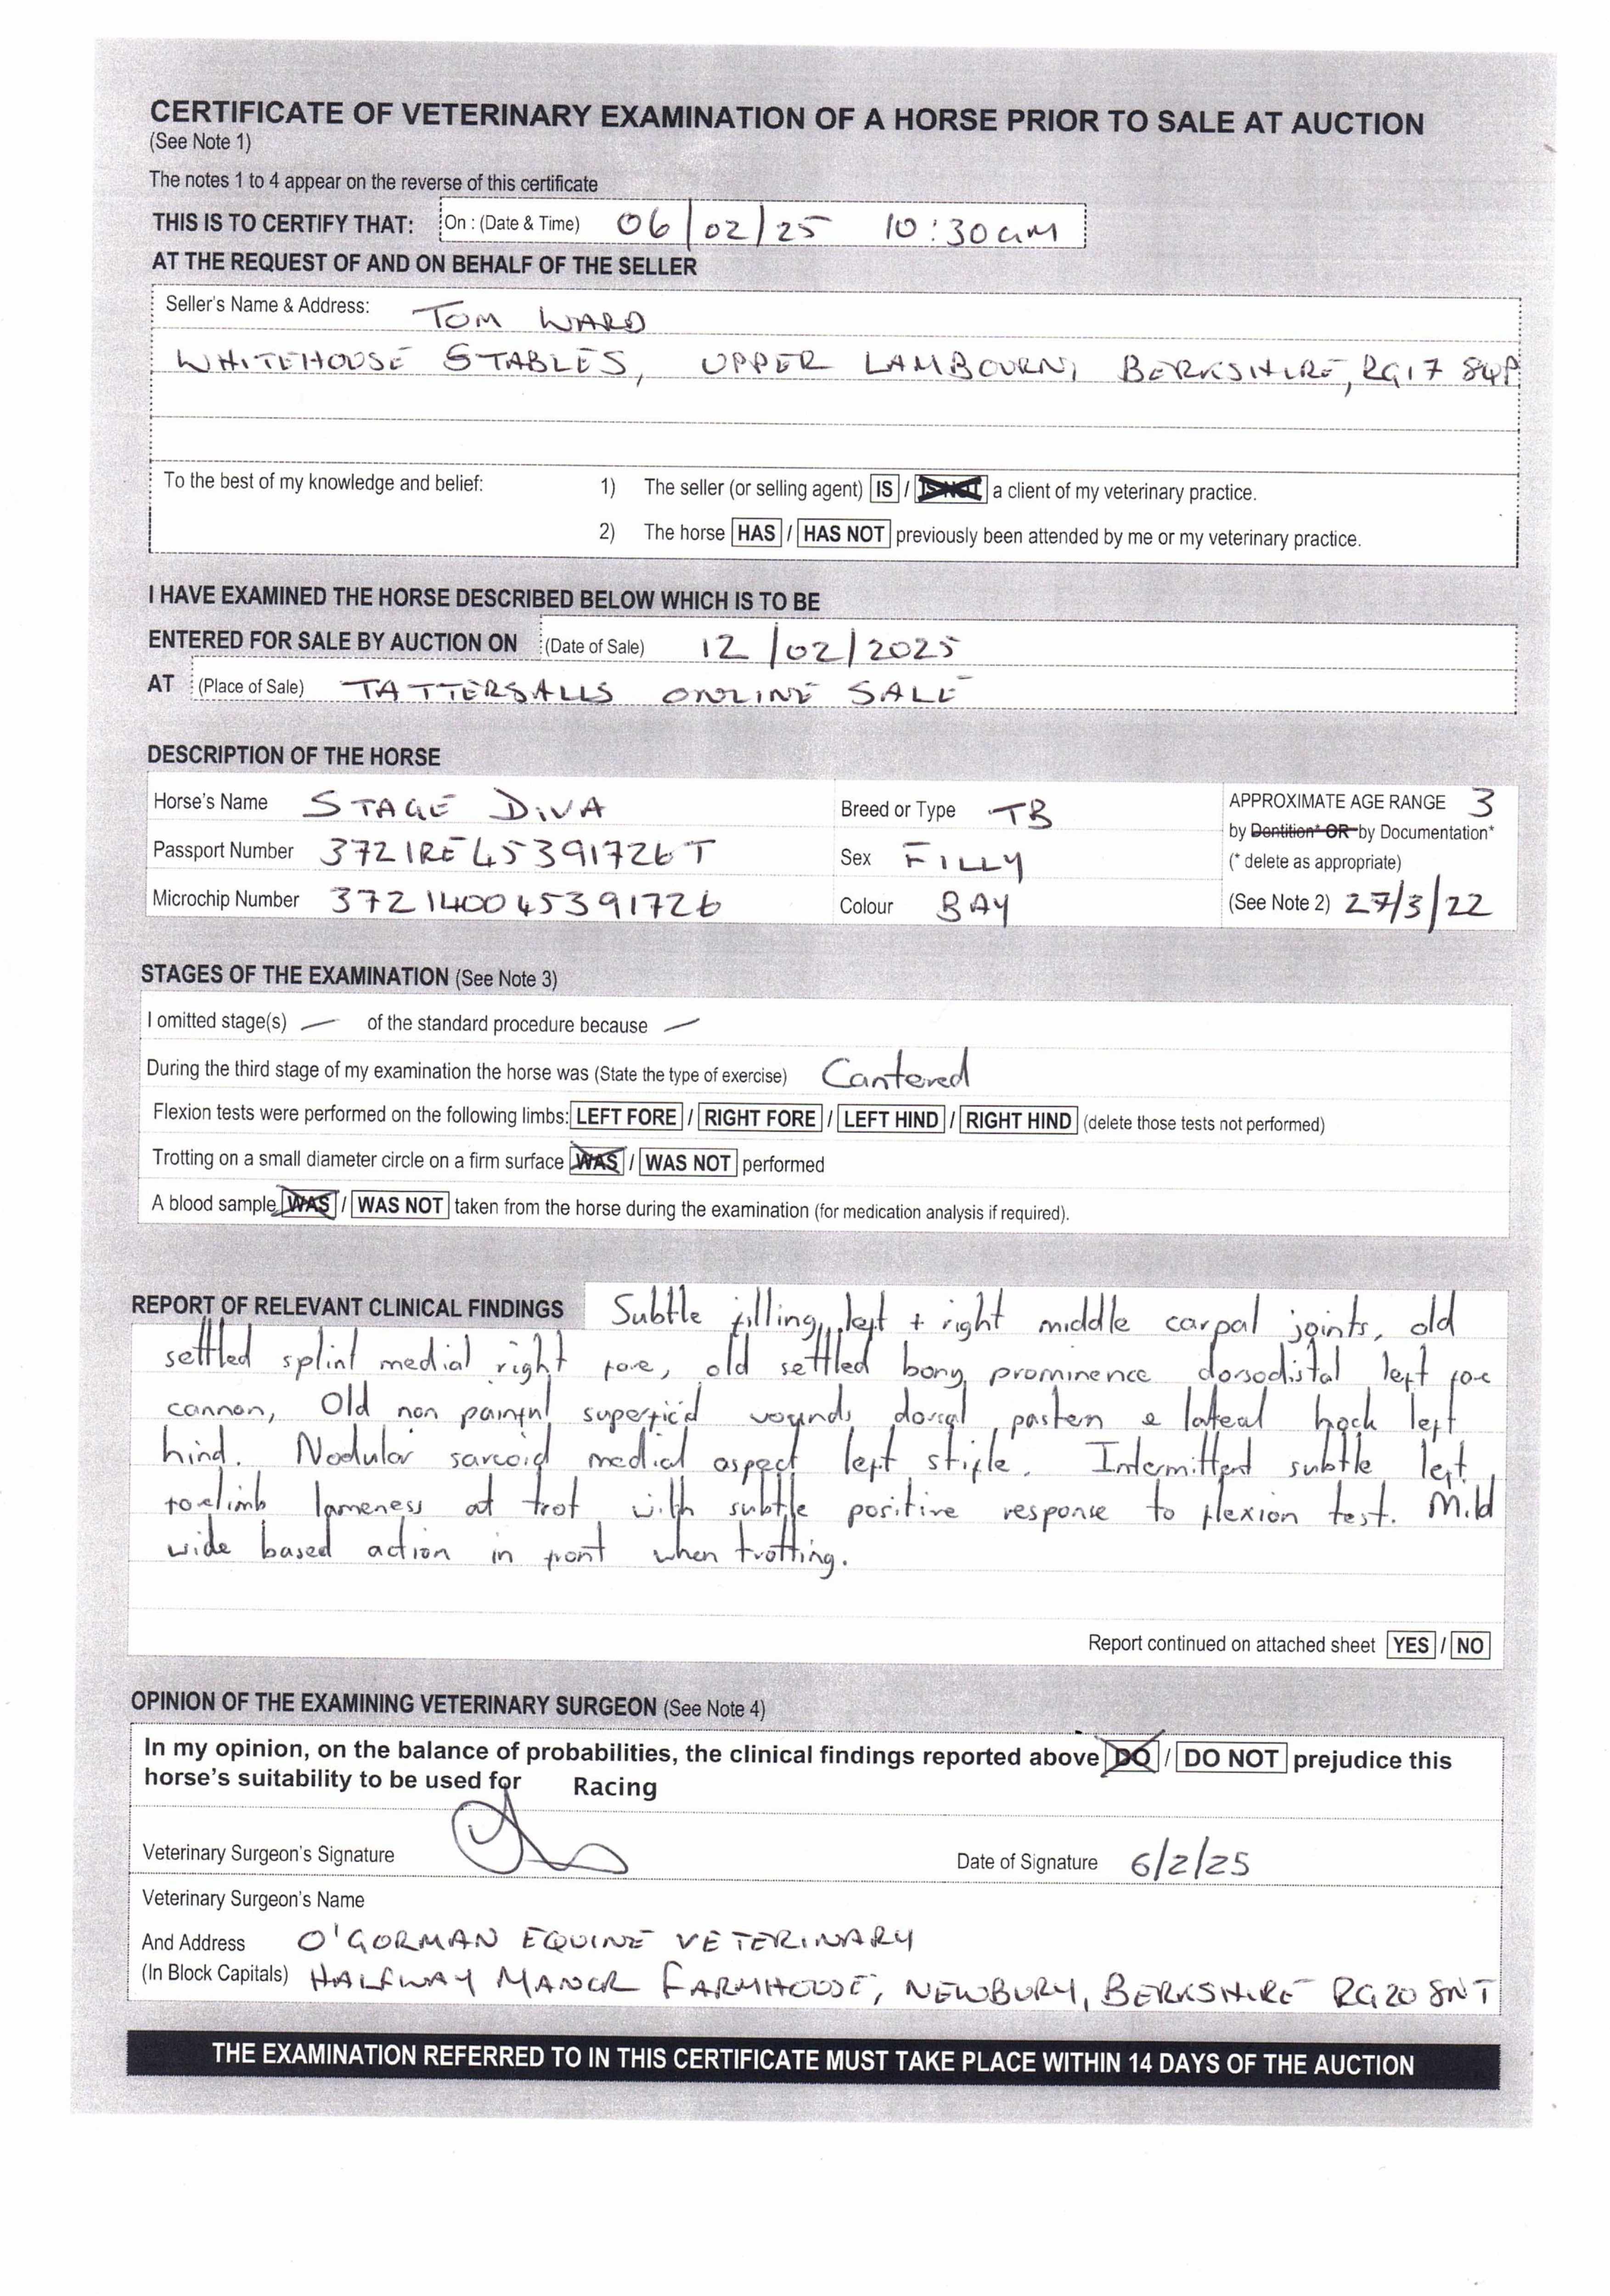 CERTIFICATE OF VETERINARY EXAMINATION OF A HORSE PRIOR TO SALE AT AUCTION
(See Note 1)
The notes 1 to 4 appear on the reverse of this certificate
THIS IS TO CERTIFY THAT: On : (Date & Time) 06/02/25 10:30am
AT THE REQUEST OF AND ON BEHALF OF THE SELLER
Seller's Name & Address: TOM WARD
WHITEHOUSE STABLES, UPPER LAMBOURN, BERKSHIRE, RG17 8QP
To the best of my knowledge and belief: 1) The seller (or selling agent) IS / IS NOT a client of my veterinary practice.
2) The horse HAS / HAS NOT previously been attended by me or my veterinary practice.
I HAVE EXAMINED THE HORSE DESCRIBED BELOW WHICH IS TO BE
ENTERED FOR SALE BY AUCTION ON (Date of Sale) 12/02/2025
AT (Place of Sale) TATTERSALLS ONLINE SALE
DESCRIPTION OF THE HORSE
Horse's Name STAGE DIVA Breed or Type TB APPROXIMATE AGE RANGE 3
by Dentition* OR by Documentation*
Passport Number 372IRE45391726T Sex FILLY (* delete as appropriate)
Microchip Number 372140045391726 Colour BAY (See Note 2) 27/3/22
STAGES OF THE EXAMINATION (See Note 3)
I omitted stage(s) — of the standard procedure because —
During the third stage of my examination the horse was (State the type of exercise) Cantered
Flexion tests were performed on the following limbs: LEFT FORE / RIGHT FORE / LEFT HIND / RIGHT HIND (delete those tests not performed)
Trotting on a small diameter circle on a firm surface WAS / WAS NOT performed
A blood sample WAS / WAS NOT taken from the horse during the examination (for medication analysis if required).
REPORT OF RELEVANT CLINICAL FINDINGS Subtle filling left + right middle carpal joints, old
settled splint medial right fore, old settled bony prominence dorsodistal left fore
cannon, Old non painful superficial wounds dorsal pastern & lateral hock left
hind. Nodular sarcoid medial aspect left stifle. Intermittent subtle left
forelimb lameness at trot with subtle positive response to flexion test. Mild
wide based action in front when trotting.
Report continued on attached sheet YES / NO
OPINION OF THE EXAMINING VETERINARY SURGEON (See Note 4)
In my opinion, on the balance of probabilities, the clinical findings reported above DO / DO NOT prejudice this
horse's suitability to be used for Racing
Veterinary Surgeon's Signature Date of Signature 6/2/25
Veterinary Surgeon's Name
And Address O'GORMAN EQUINE VETERINARY
(In Block Capitals) HALFWAY MANOR FARMHOUSE, NEWBURY, BERKSHIRE RG20 8NT
THE EXAMINATION REFERRED TO IN THIS CERTIFICATE MUST TAKE PLACE WITHIN 14 DAYS OF THE AUCTION